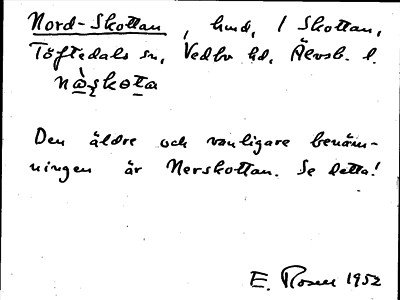 Nord-Skottan, hmd, / Skottan,
Töftedals sn, Vedbo hd, Älvsb. l.
Den äldre och vanligare benäm-
ningen är Nerskottan. Se detta!
E. Rosen 1952